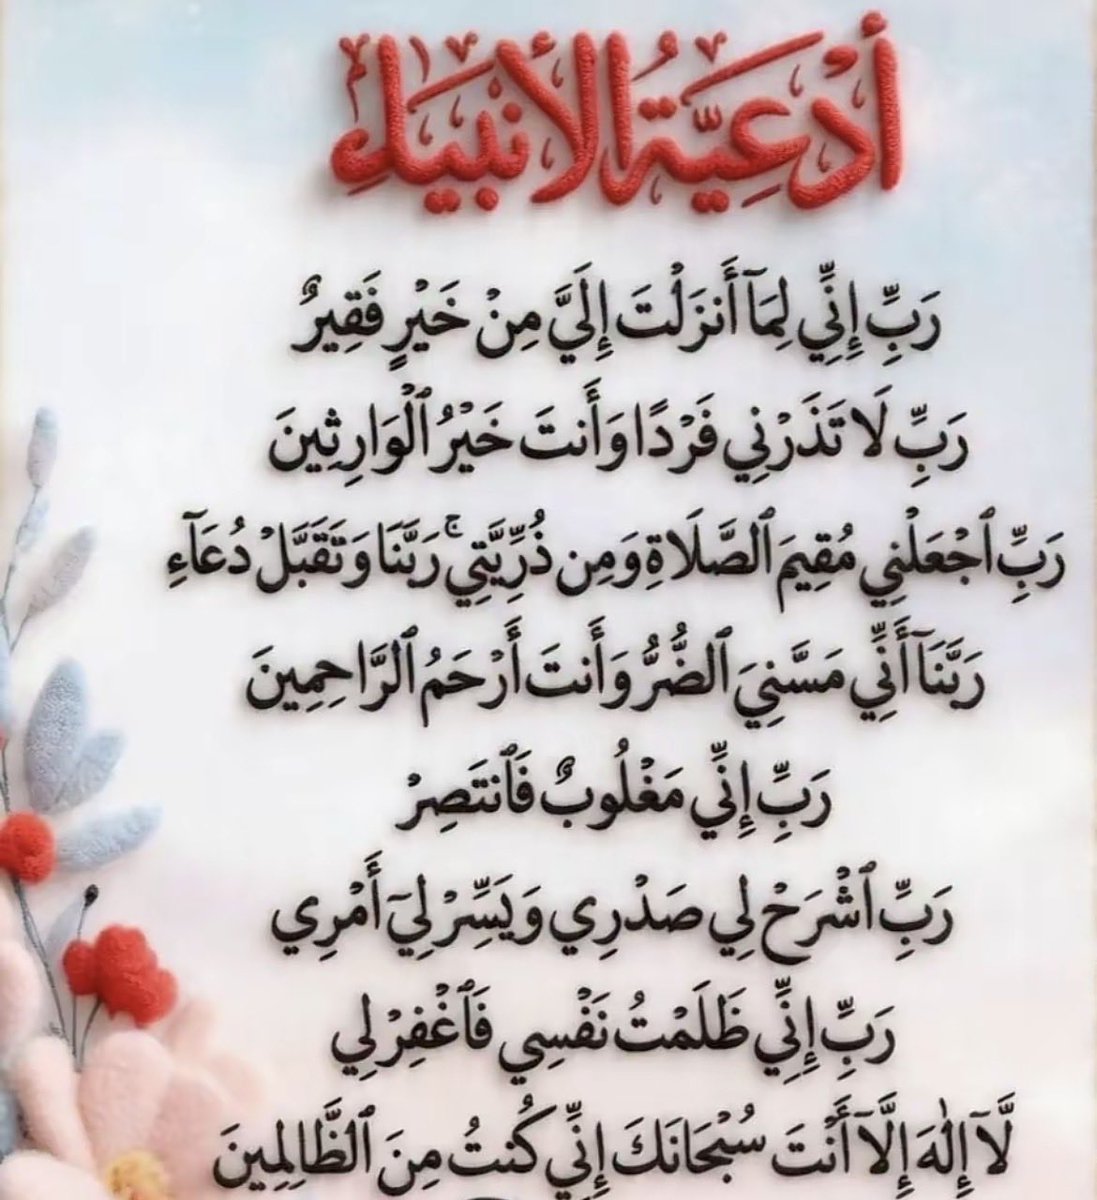 أَدْعِيَّةُ الأَنْبِيَاءِ
رَبِّ إِنِّي لِمَآ أَنزَلْتَ إِلَيَّ مِنْ خَيْرٍ فَقِيرٌ
رَبِّ لَا تَذَرْنِي فَرْدًا وَأَنتَ خَيْرُ ٱلْوَارِثِينَ
رَبِّ ٱجْعَلْنِي مُقِيمَ ٱلصَّلَاةِ وَمِن ذُرِّيَّتِي ۚ رَبَّنَا وَتَقَبَّلْ دُعَآءِ
رَبَّنَآ أَنِّي مَسَّنِيَ ٱلضُّرُّ وَأَنتَ أَرْحَمُ ٱلرَّاحِمِينَ
رَبِّ إِنِّي مَغْلُوبٌ فَٱنتَصِرْ
رَبِّ ٱشْرَحْ لِي صَدْرِي وَيَسِّرْ لِيٓ أَمْرِي
رَبِّ إِنِّي ظَلَمْتُ نَفْسِي فَٱغْفِرْ لِي
لَّآ إِلَٰهَ إِلَّآ أَنْتَ سُبْحَانَكَ إِنِّي كُنتُ مِنَ ٱلظَّالِمِينَ